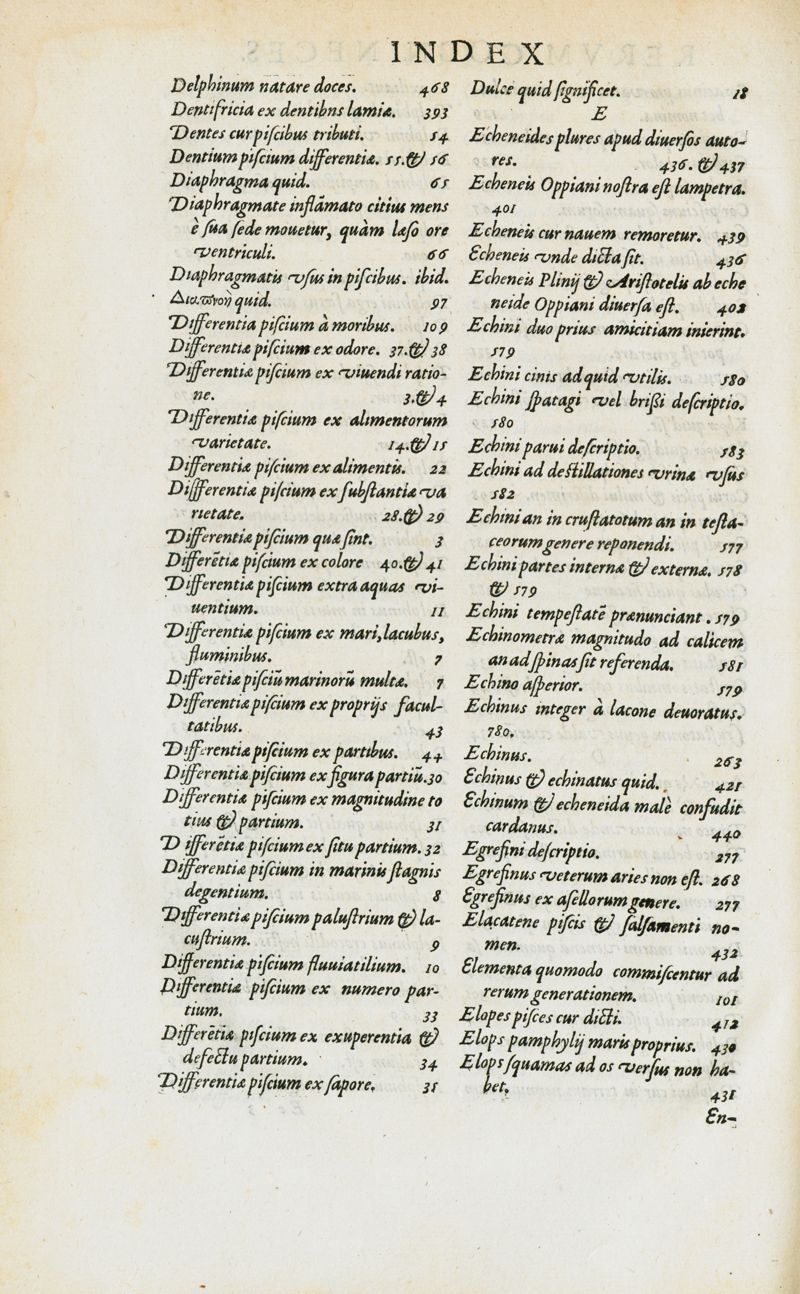 INDEX
Delphinum natare doces. 468
Dentifricia ex dentibns lamiæ. 393
Dentes cur piſcibus tributi. 54
Dentium piſcium differentiæ. 55.& 56
Diaphragma quid. 65
Diaphragmate inflāmato citius mens
è ſua ſede mouetur, quàm læſo ore
ventriculi. 66
Diaphragmatis vſus in piſcibus. ibid.
quid. 97
Differentia piſcium à moribus. 109
Differentiæ piſcium ex odore. 37.& 38
Differentiæ piſcium ex viuendi ratio-
ne. 3.& 4
Differentiæ piſcium ex alimentorum
varietate. 14.& 15
Differentiæ piſcium ex alimentis. 22
Differentiæ piſcium ex ſubſtantiæ va
rietate. 28.& 29
Differentiæ piſcium quæ ſint. 3
Differētiæ piſcium ex colore 40.& 41
Differentiæ piſcium extra aquas vi-
uentium. 11
Differentiæ piſcium ex mari, lacubus,
fluminibus. 7
Differētiæ piſciū marinorū multæ. 7
Differentiæ piſcium ex proprijs facul-
tatibus. 43
Differentiæ piſcium ex partibus. 44
Differentiæ piſcium ex figura partiū. 30
Differentiæ piſcium ex magnitudine to
tius & partium. 31
Differētiæ piſcium ex ſitu partium. 32
Differentiæ piſcium in marinis ſtagnis
degentium. 8
Differentiæ piſcium paluſtrium & la-
cuſtrium. 9
Differentiæ piſcium fluuiatilium. 10
Differentiæ piſcium ex numero par-
tium. 33
Differētiæ piſcium ex exuperentia &
defectu partium. 34
Differentiæ piſcium ex ſapore. 35
Dulce quid ſignificet. 18
E
Echeneides plures apud diuerſos auto-
res. 436. & 437
Echeneis Oppiani noſtra eſt lampetra.
401
Echeneis cur nauem remoretur. 439
Echeneis vnde dicta ſit. 436
Echeneis Plinij & Ariſtotelis ab eche
neide Oppiani diuerſa eſt. 402
Echini duo prius amicitiam inierint.
579
Echini cinis ad quid vtilis. 580
Echini ſpatagi vel brißi deſcriptio.
580
Echini parui deſcriptio. 583
Echini ad deſtillationes vrinæ vſus
582
Echini an in cruſtatotum an in teſta-
ceorum genere reponendi. 577
Echini partes internæ & externæ. 578
& 579
Echini tempeſtatē prænunciant. 579
Echinometræ magnitudo ad calicem
an ad ſpinas ſit referenda. 581
Echino aſperior. 579
Echinus integer à lacone deuoratus.
780.
Echinus. 263
Echinus & echinatus quid. 421
Echinum & echeneida malè confudit
cardanus. 440
Egrefini deſcriptio. 277
Egrefinus veterum aries non eſt. 268
Egrefinus ex aſellorum genere. 277
Elacatene piſcis & ſalſamenti no-
men. 432
Elementa quomodo commiſcentur ad
rerum generationem. 101
Elopes piſces cur dicti. 412
Elops pamphylij maris proprius. 430
Elops ſquamas ad os verſus non ha-
bet. 431
En-